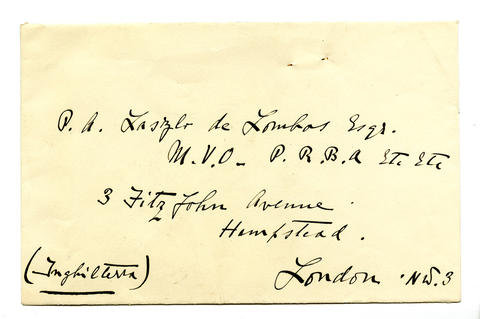 P. A. Laszlo de Lombos Esqr.
M.V.O - P.R.B.A Etc Etc
3 Fitz John Avenue
Hempstead.
(Inghilterra)
London . NW.3